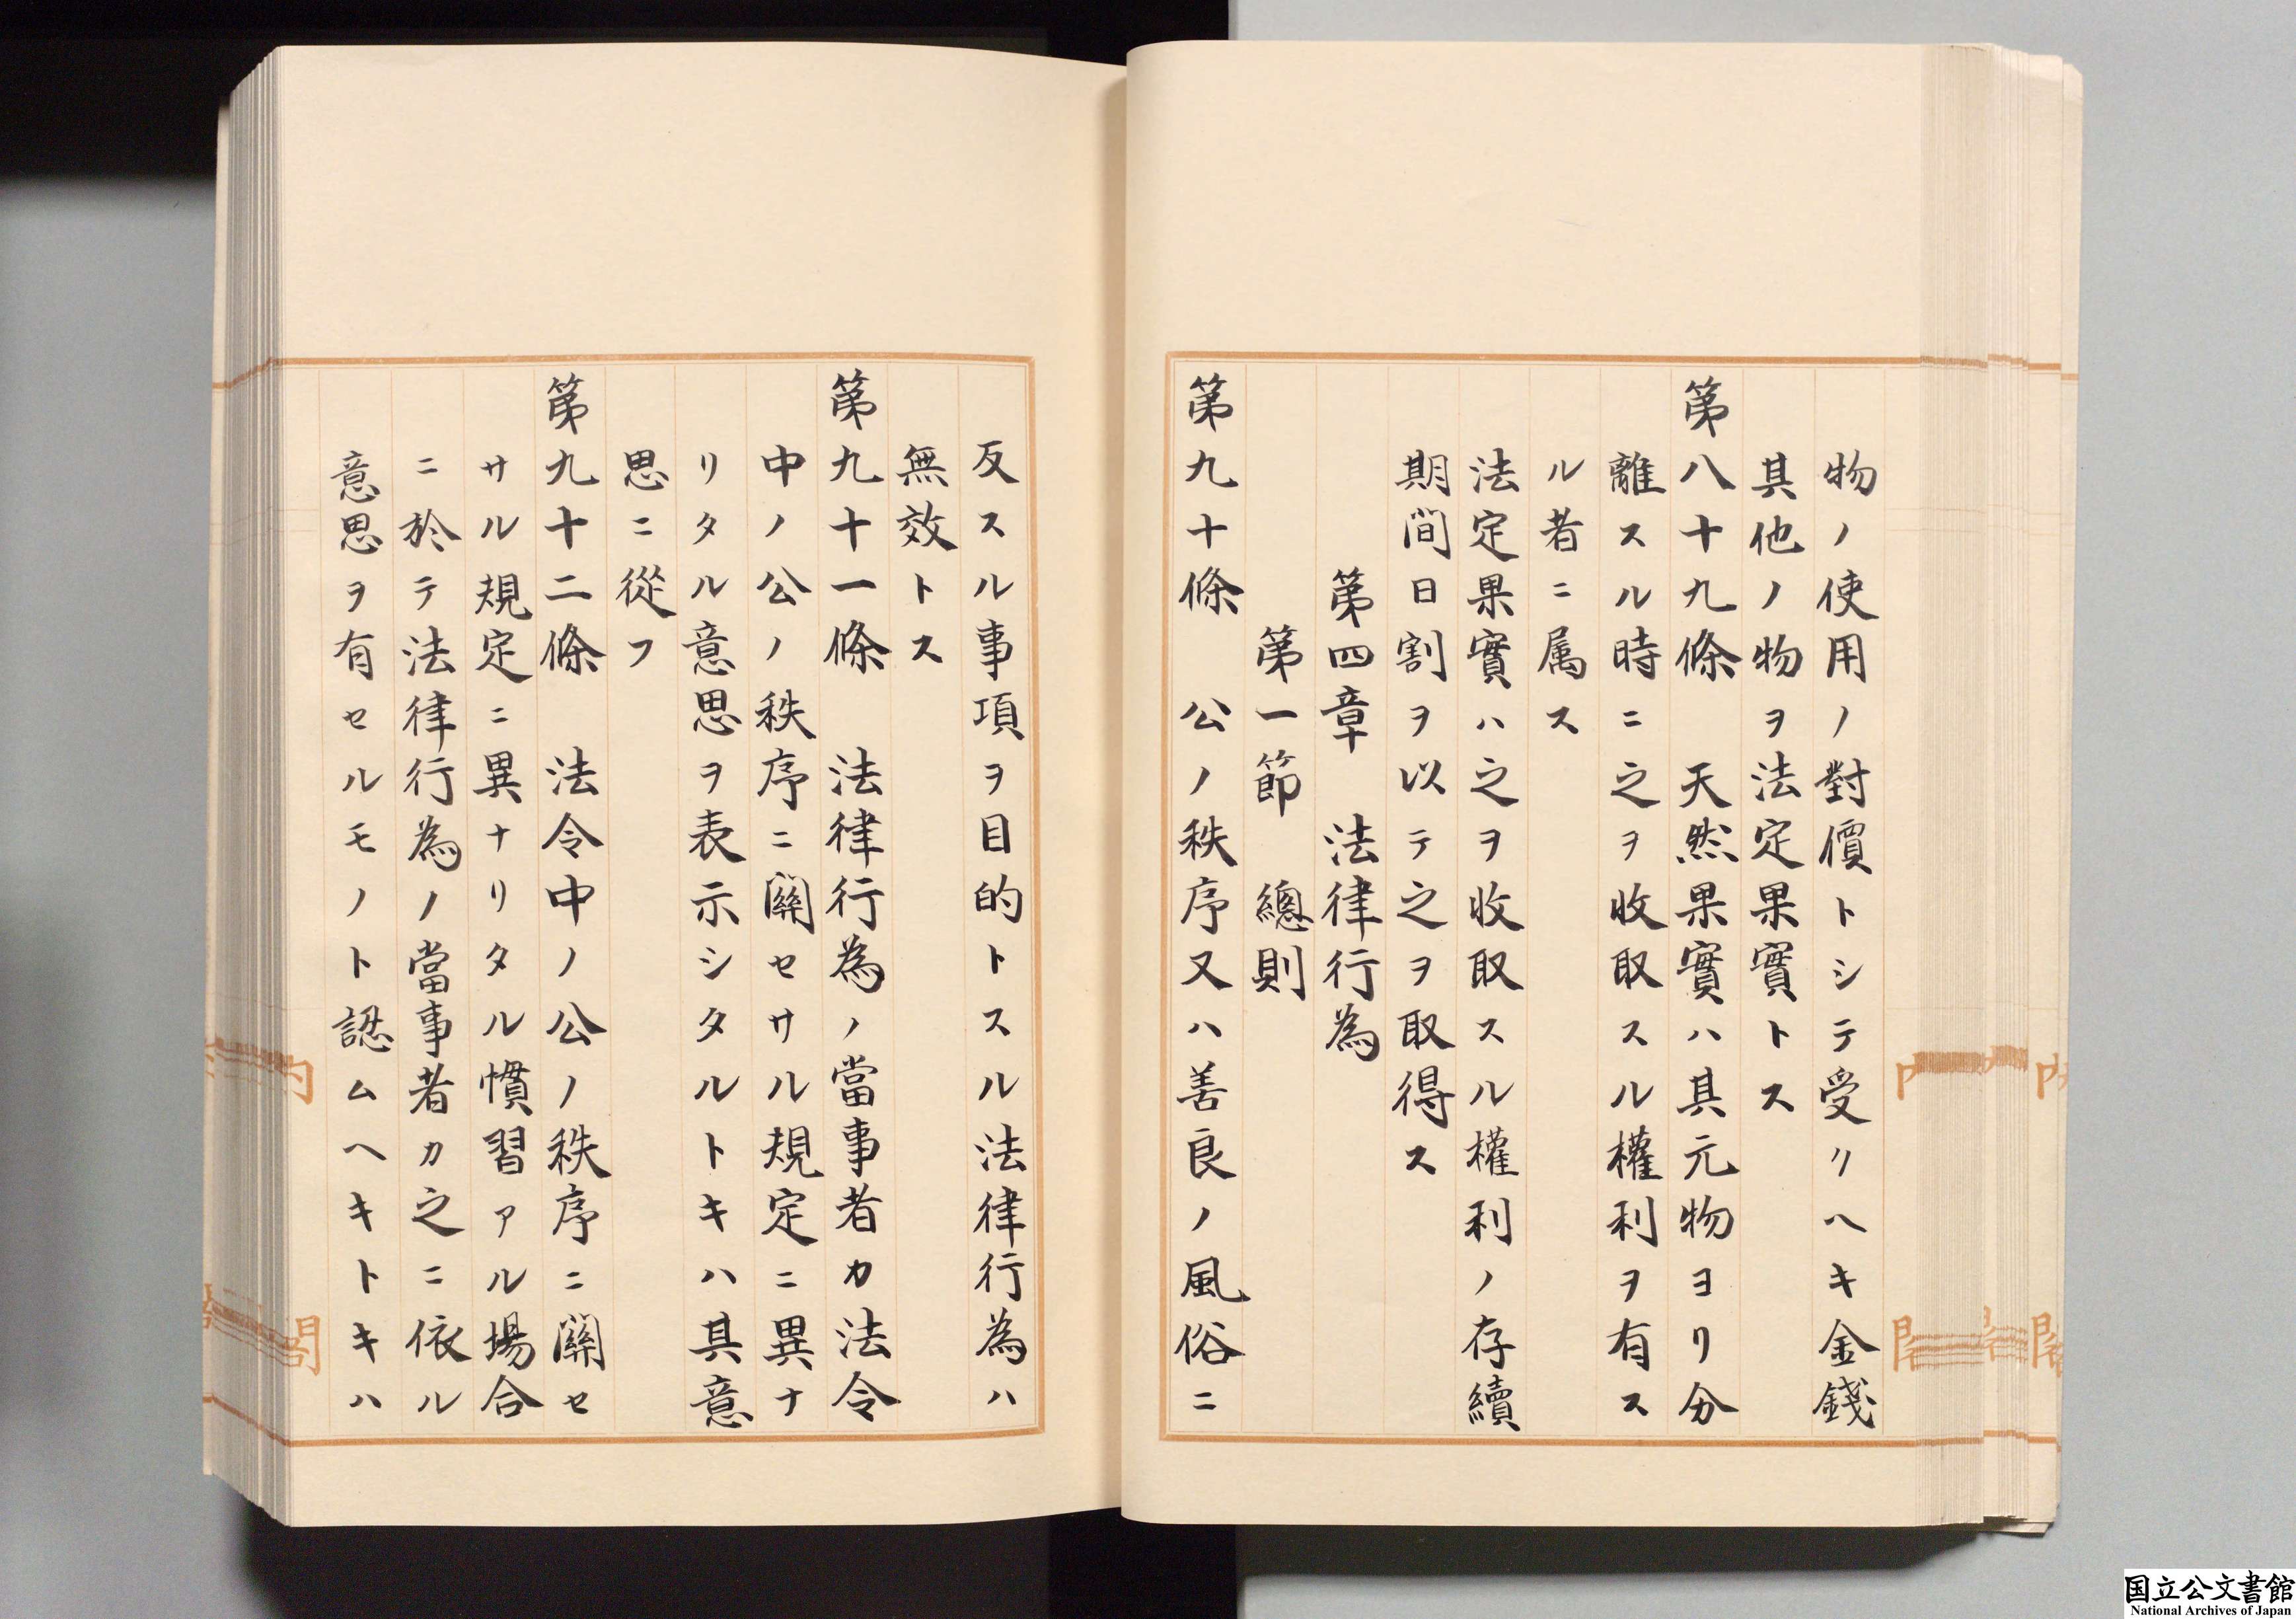 物ノ使用ノ對價トシテ受クヘキ金錢
其他ノ物ヲ法定果實トス
第八十九條　天然果實ハ其元物ヨリ分
離スル時ニ之ヲ收取スル權利ヲ有ス
ル者ニ属ス
法定果實ハ之ヲ收取スル權利ノ存續
期間日割ヲ以テ之ヲ取得ス
第四章　法律行為
第一節　總則
第九十條　公ノ秩序又ハ善良ノ風俗ニ
反スル事項ヲ目的トスル法律行為ハ
無效トス
第九十一條　法律行為ノ當事者カ法令
中ノ公ノ秩序ニ關セサル規定ニ異ナ
リタル意思ヲ表示シタルトキハ其意
思ニ從フ
第九十二條　法令中ノ公ノ秩序ニ關セ
サル規定ニ異ナリタル慣習アル場合
ニ於テ法律行為ノ當事者カ之ニ依ル
意思ヲ有セルモノト認ムヘキトキハ
国立公文書館
National Archives of Japan